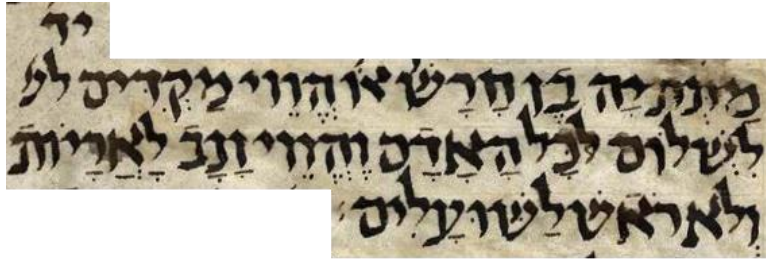 יד
מתתיה בן חרש או הווי מקדים לש
לשלום לכל האדם והווי זנב לאריות
ולא ראש לשועלים